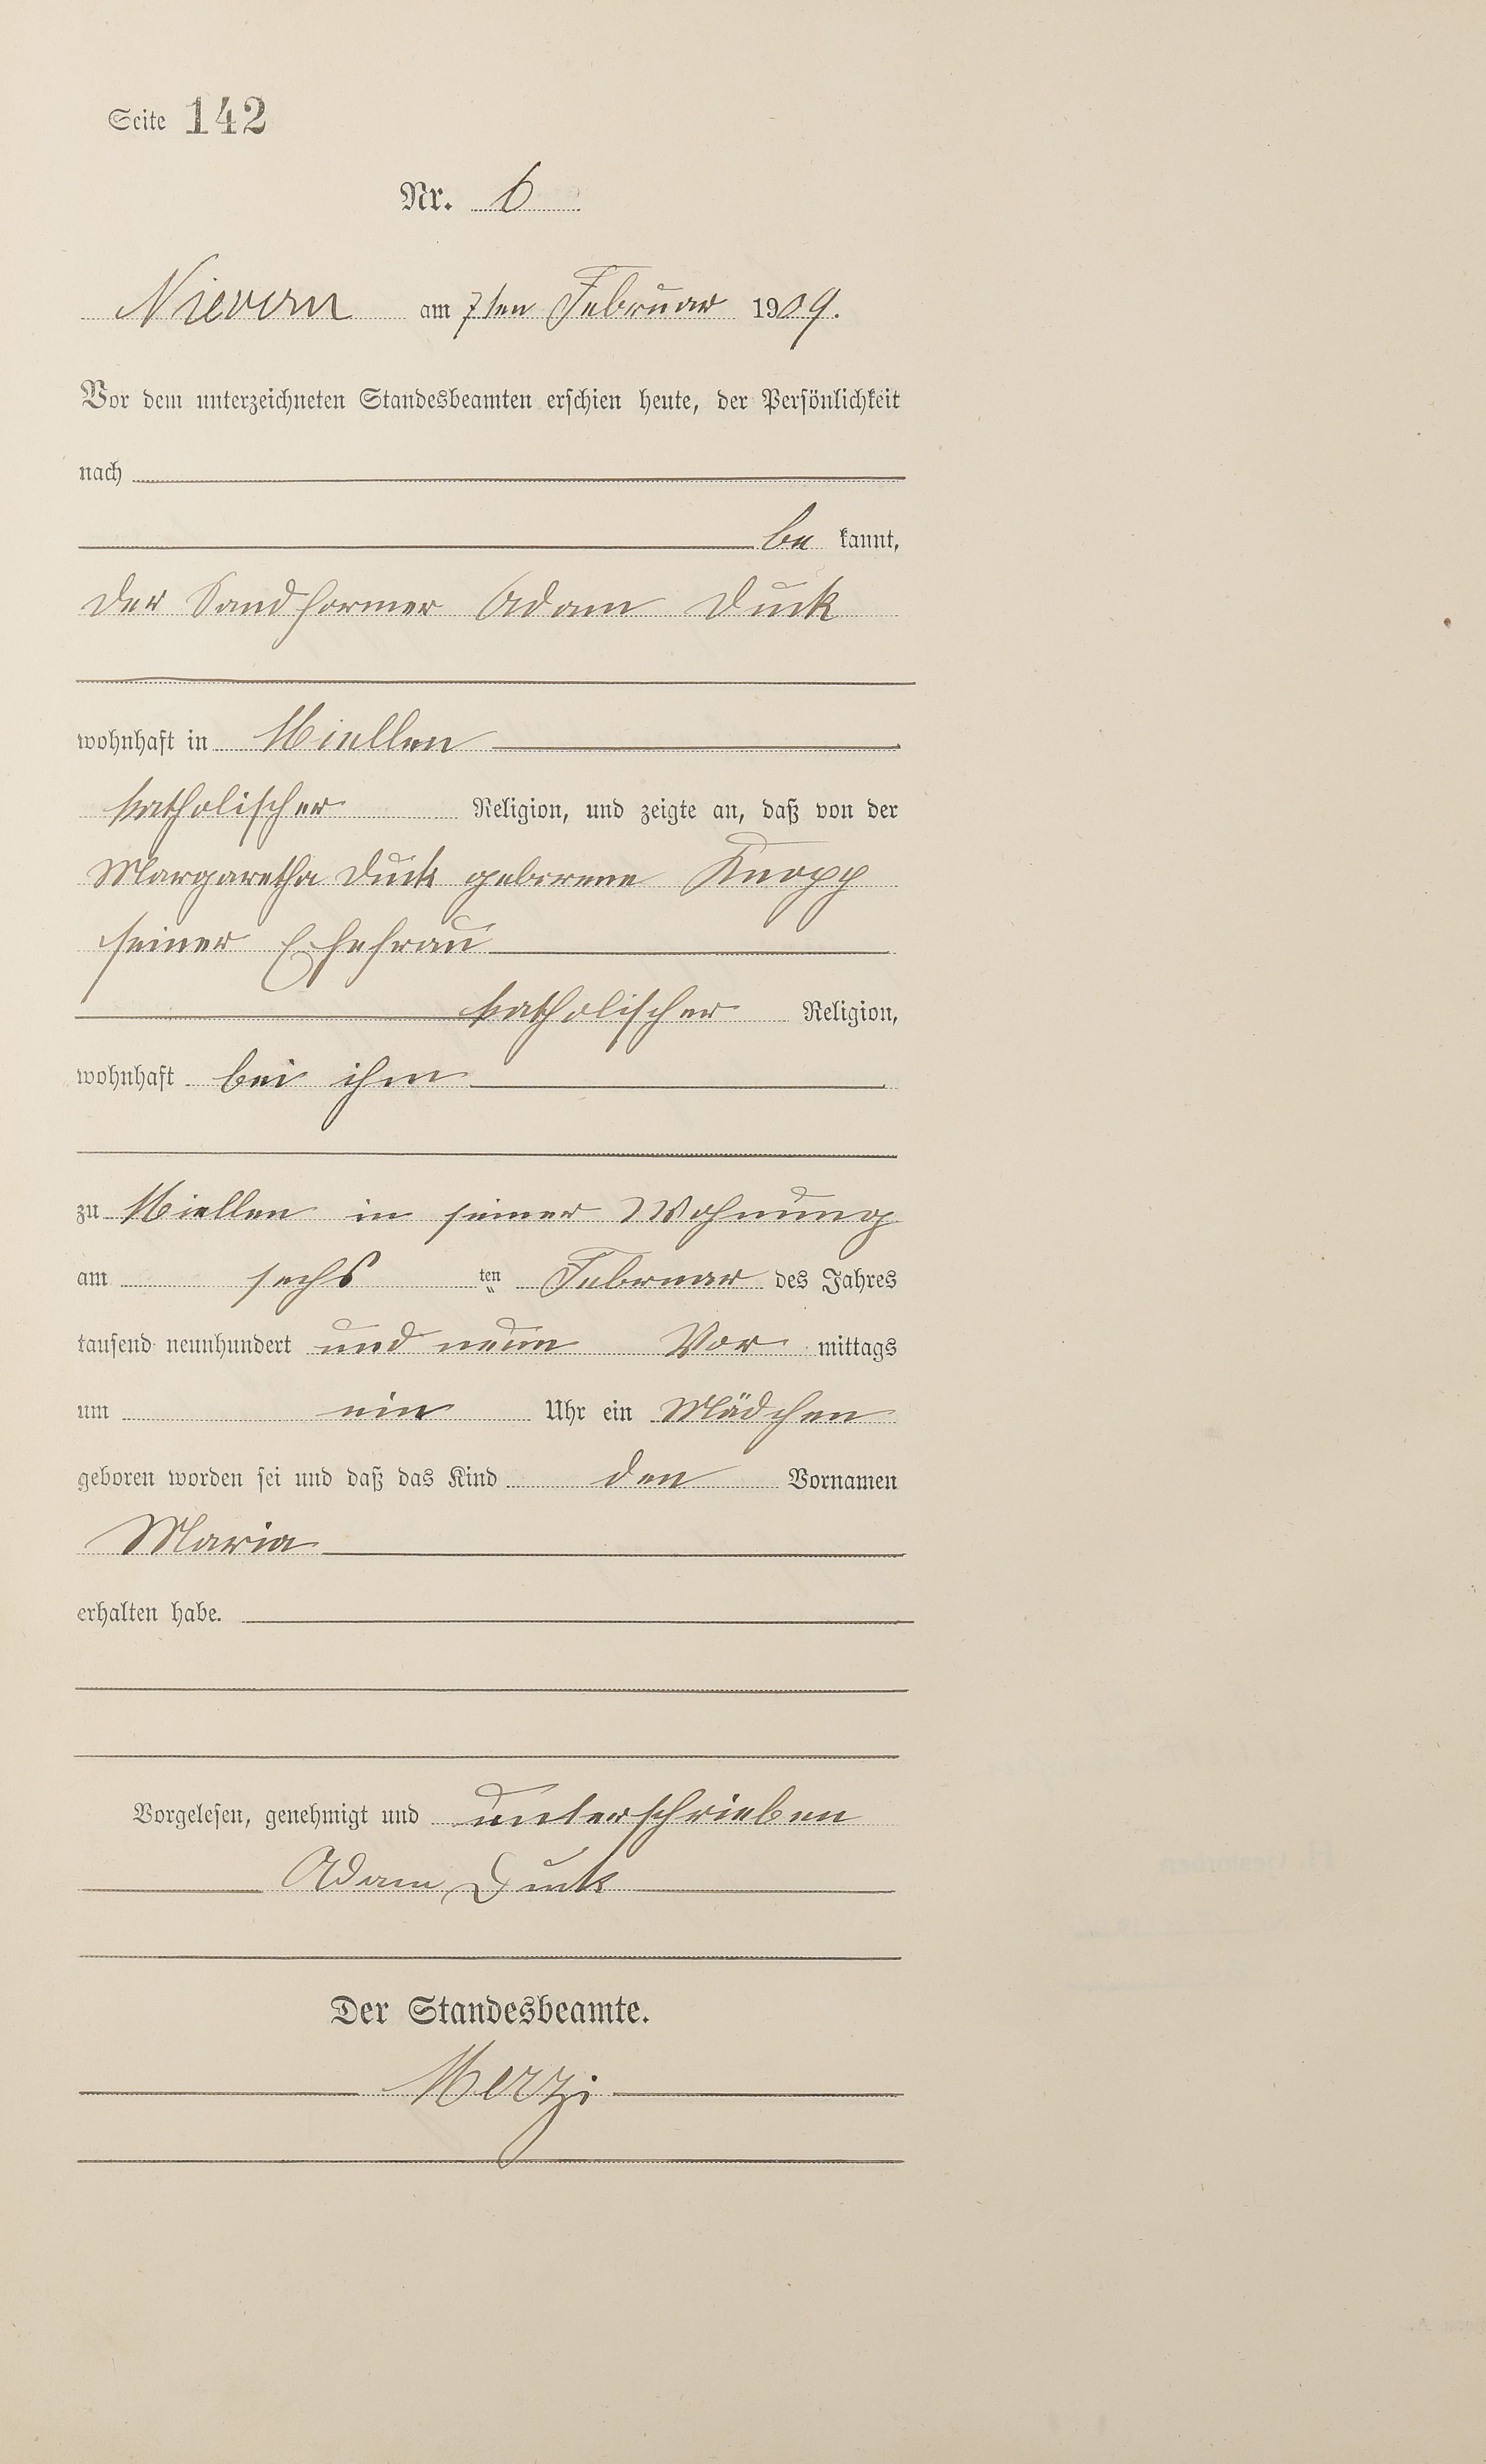 Seite 142
Nr. 6
Nievern am 7ten Februar 1909.
Vor dem unterzeichneten Standesbeamten erschien heute, der Persönlichkeit
nach
be kannt,
der Sandformer Adam Duck
wohnhaft in Miellen
katholischer Religion, und zeigte an, daß von der
Margaretha Duck geborene Knopp
seiner Ehefrau
katholischer Religion,
wohnhaft bei ihm
zu Miellen in seiner Wohnung
am sechs ten Februar des Jahres
tausend neunhundert und neun Vor mittags
um ein Uhr ein Mädchen
geboren worden sei und daß das Kind den Vornamen
Maria
erhalten habe.
Vorgelesen, genehmigt und unterschrieben
Adam Duck
Der Standesbeamte.
Merzi